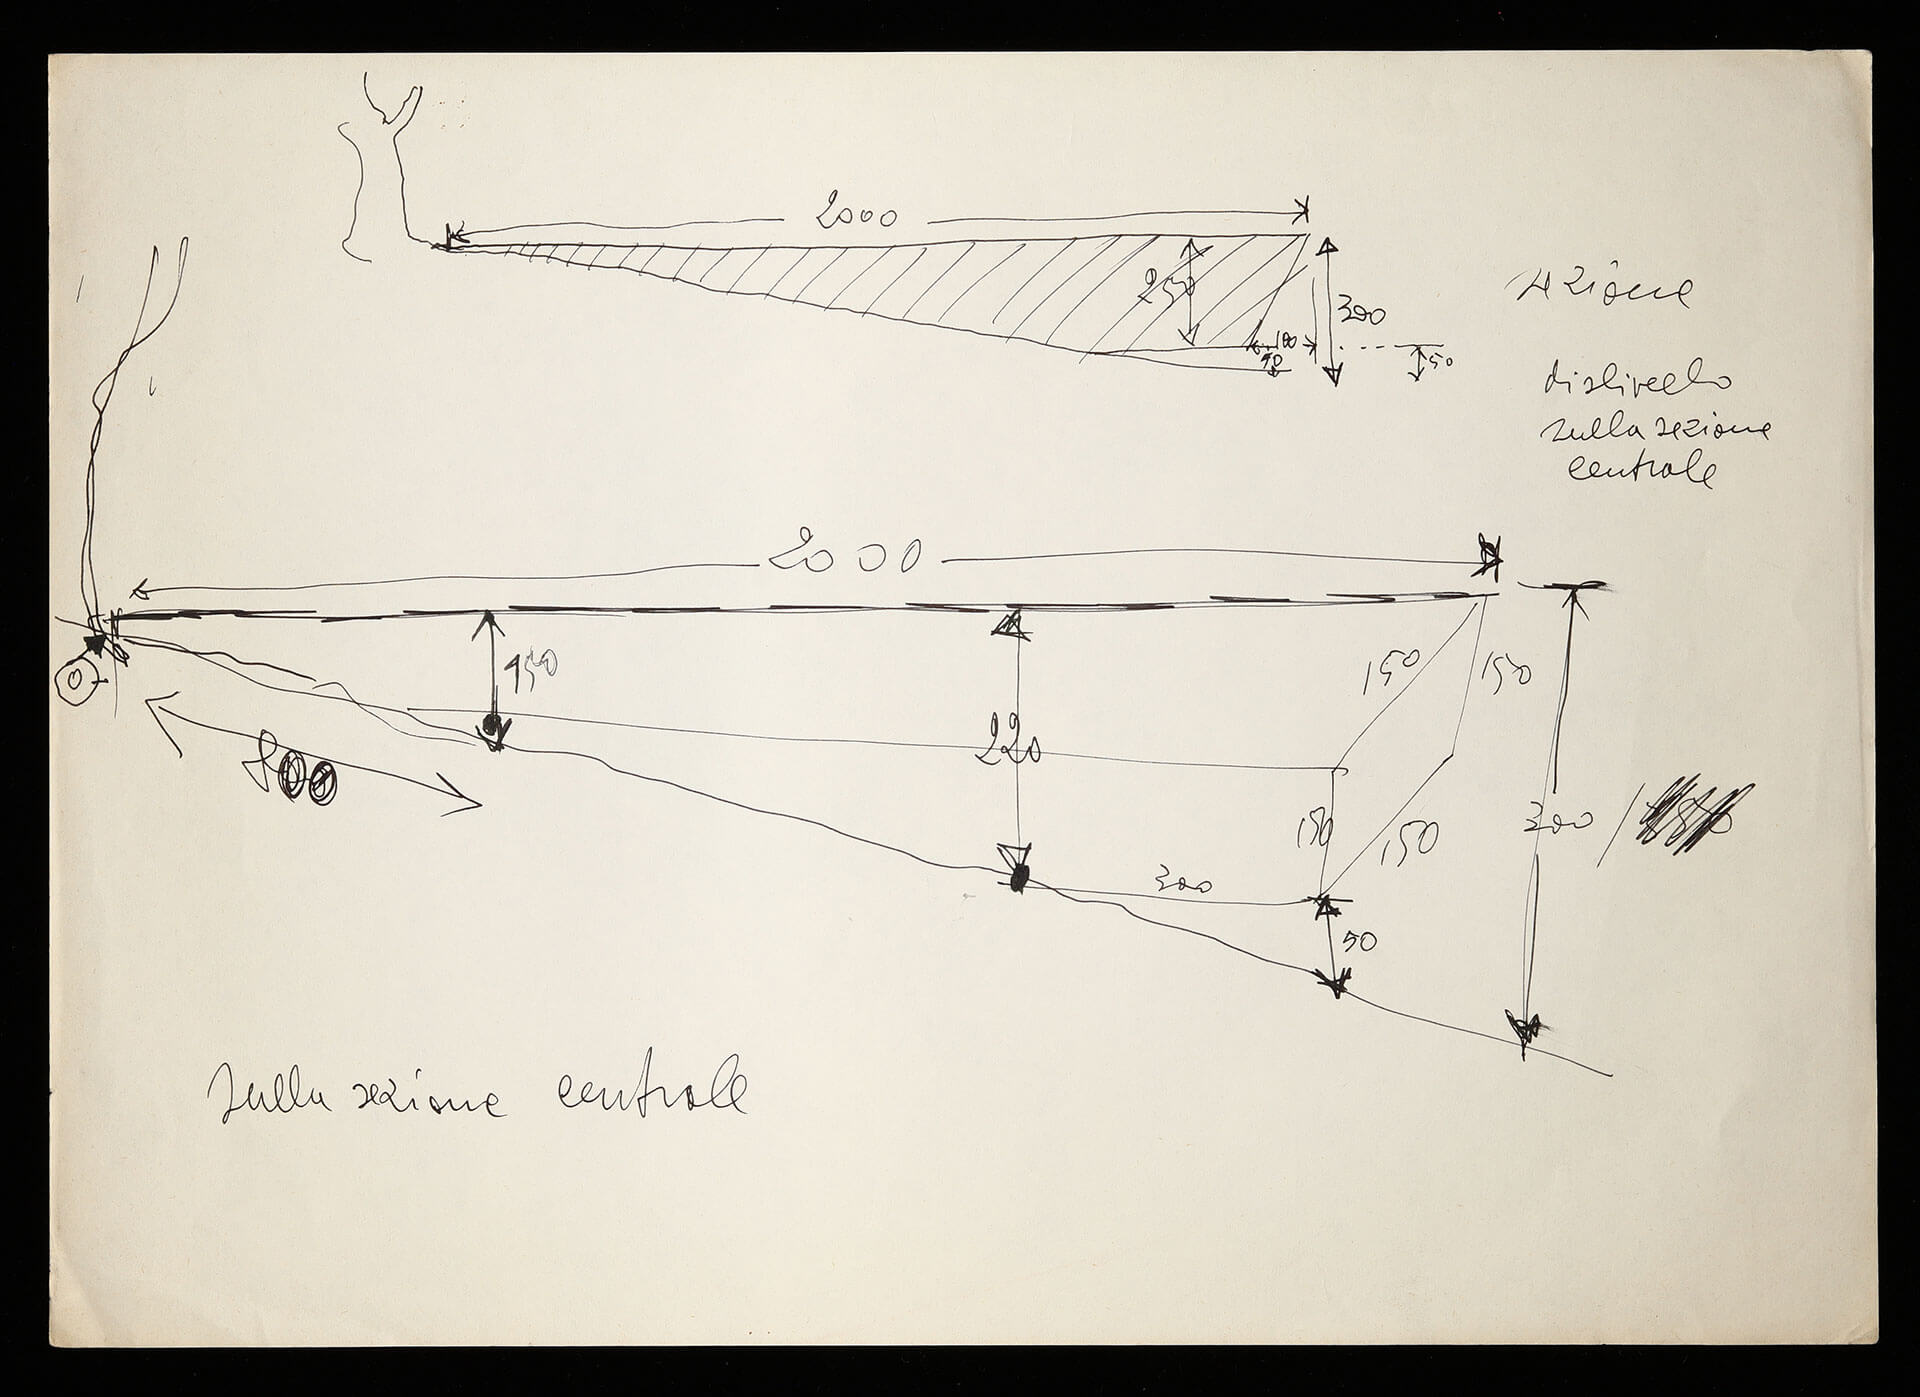 2000
250
300
100
50
50
sezione
dislivello
sulla sezione
centrale
2000
150
150
150
220
800
150
150
300
300
50
sulla sezione centrale